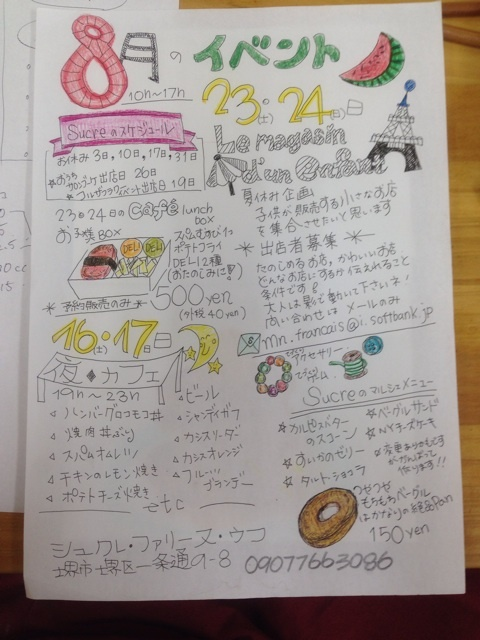 8月のイベント
10h〜17h
23(土)・24日(日)
Sucreのスケジュール
お休み 3日,10日,17日,31日
出店日 26日
出店日 19日
Le magasin
d'un Enfant
夏休み企画
子供が販売する小さなお店
を集合させたいと思います
＊出店者募集＊
たのしめるお店、かわいいお店
どんなお店にするか伝えれること
条件です!
大人は影で動いて下さいネ!
問い合わせは メールのみ
mn.francais@i.softbank.jp
23日24日のCafé lunch box
お子様BOX
スパムむすび1コ
ポテトフライ
DELI2種
(おたのしみに!)
DELI
DELI
＊予約販売のみ＊
500yen
(外税40yen)
16(土)・17日(日)
夜◆カフェ
19h〜23h
ハンバーグロコモコ丼
焼肉丼ぶり
スパムオムレツ
チキンのレモン焼き
ポテトチーズ焼き
etc
ビール
シャンディガフ
カシスソーダー
カシスオレンジ
フルーツ
ブランデー
アクセサリー
Sucreのマルシェメニュー
☆カルピスバター
のスコーン
☆すいかのゼリー
☆タルトショコラ
☆ベーグルサンド
☆N.Yチーズケーキ
☆変更ありますが
がんばって
作ります!!
つせつせ
もちもちベーグル
はかなりの絶品Pan
150yen
シュクレ・ファリーヌ・ウフ
堺市堺区一条通9-8
09077663086